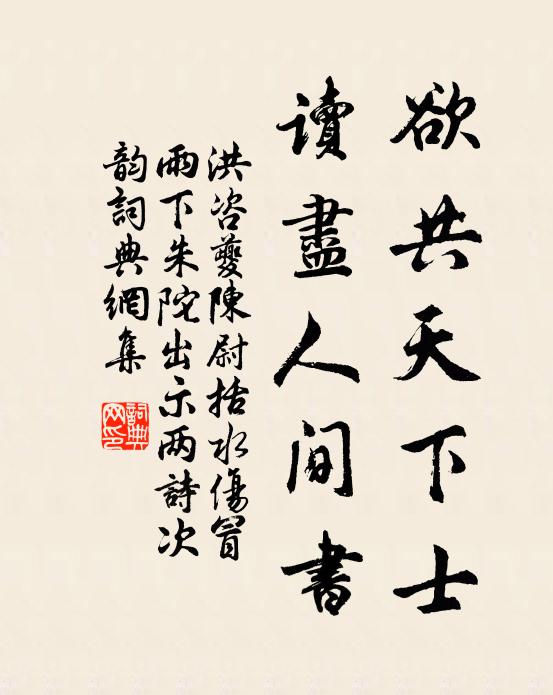 欲共天下士
讀盡人間書
洪咨夔陳尉括水傷冒
雨下朱陀出示两詩次
韵詞典網集
詞典
网印